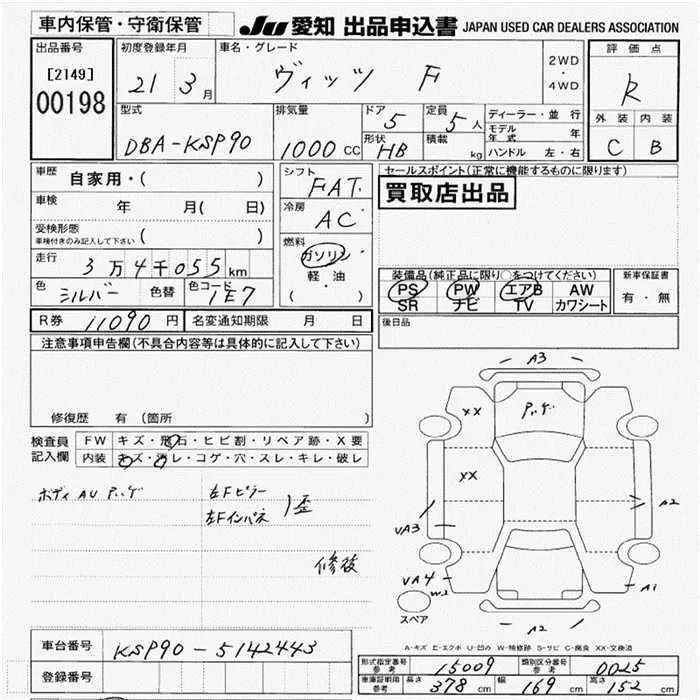 車内保管・守衛保管
JU 愛知 出品申込書 JAPAN USED CAR DEALERS ASSOCIATION
出品番号
[2149]
00198
初度登録年月
21 3月
車名・グレード
ヴィッツ F
2WD
・
4WD
評価点
R
外装 内装
C B
型式
DBA-KSP90
排気量
1000 CC
ドア
5
定員
5人
形状
HB
積載
kg
ディーラー・並行
モデル年式 年
ハンドル 左・右
車歴
自家用・( )
車検
年 月( 日)
受検形態
車検付きのみ記入して下さい ( )
走行
3万4千055km
色
シルバー
色替
色コード
1E7
シフト
FAT
冷房
AC
燃料
ガソリン
軽・油
( )
セールスポイント(正常に機能するものに限ります)
買取店出品
装備品(純正品に限り○をつけてください)
PS PW エアB AW
SR ナビ TV カワシート
新車保証書
有・無
R券 11090円
名変通知期限 月 日
後日品
注意事項申告欄(不具合内容等は具体的に記入して下さい)
修復歴 有 (箇所
検査員
記入欄
FW キズ・飛石・ヒビ割・リペア跡・X要
内装 キズ・汚レ・コゲ・穴・スレ・キレ・破レ
ボディ AU
左Fピラー
左Fインパネ
歪
修後
A3
XX
XX
UA3
A2
UA4
W2
A1
スペア
A2
A-キズ E-エクボ U-凹み W-補修跡 S-サビ C-腐食 XX-交換済
車台番号
KSP90-5142443
登録番号
形式指定番号
参考
15009
類別区分番号
参考
0025
車庫証明用
参考
長さ 378 cm
幅 169 cm
高さ 152 cm